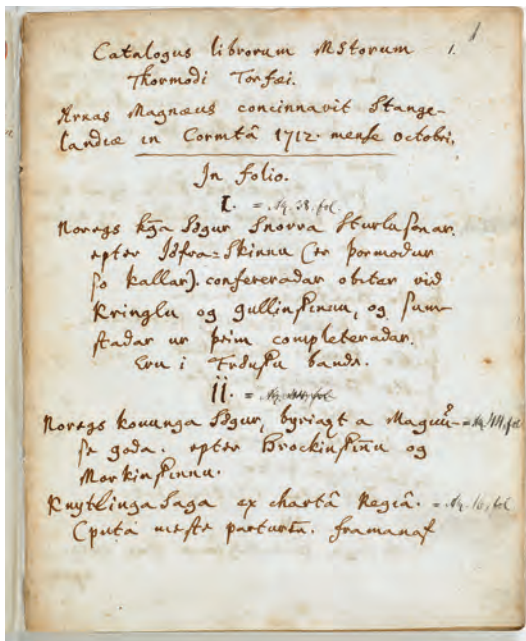 Catalogus librorum MStorum 1. 1
Thormodi Torfæi.
Arnas Magnæus concinnavit Stange-
landiæ in Cormtâ 1712. mense octobri.
In folio.
I. = AM. 38. fol.
Noregs kga Sögur Snorra Sturlusonar.
epter Jöfra-Skinnu (er þormodur
so kallar). confereradar obiter vid
Kringlu og gullinskinnu, og sum-
stadar ur þeim completeradar.
Eru i Trönsku bande.
II. fol
Noregs konunga Sögur, byriast a Magnuse = AM fol
goda. epter Hrockinskinnu og
Morkinskinnu.
Knytlinga Saga ex chartâ Regiâ. = AM. 18, fol
(puta meste parturen. framanaf